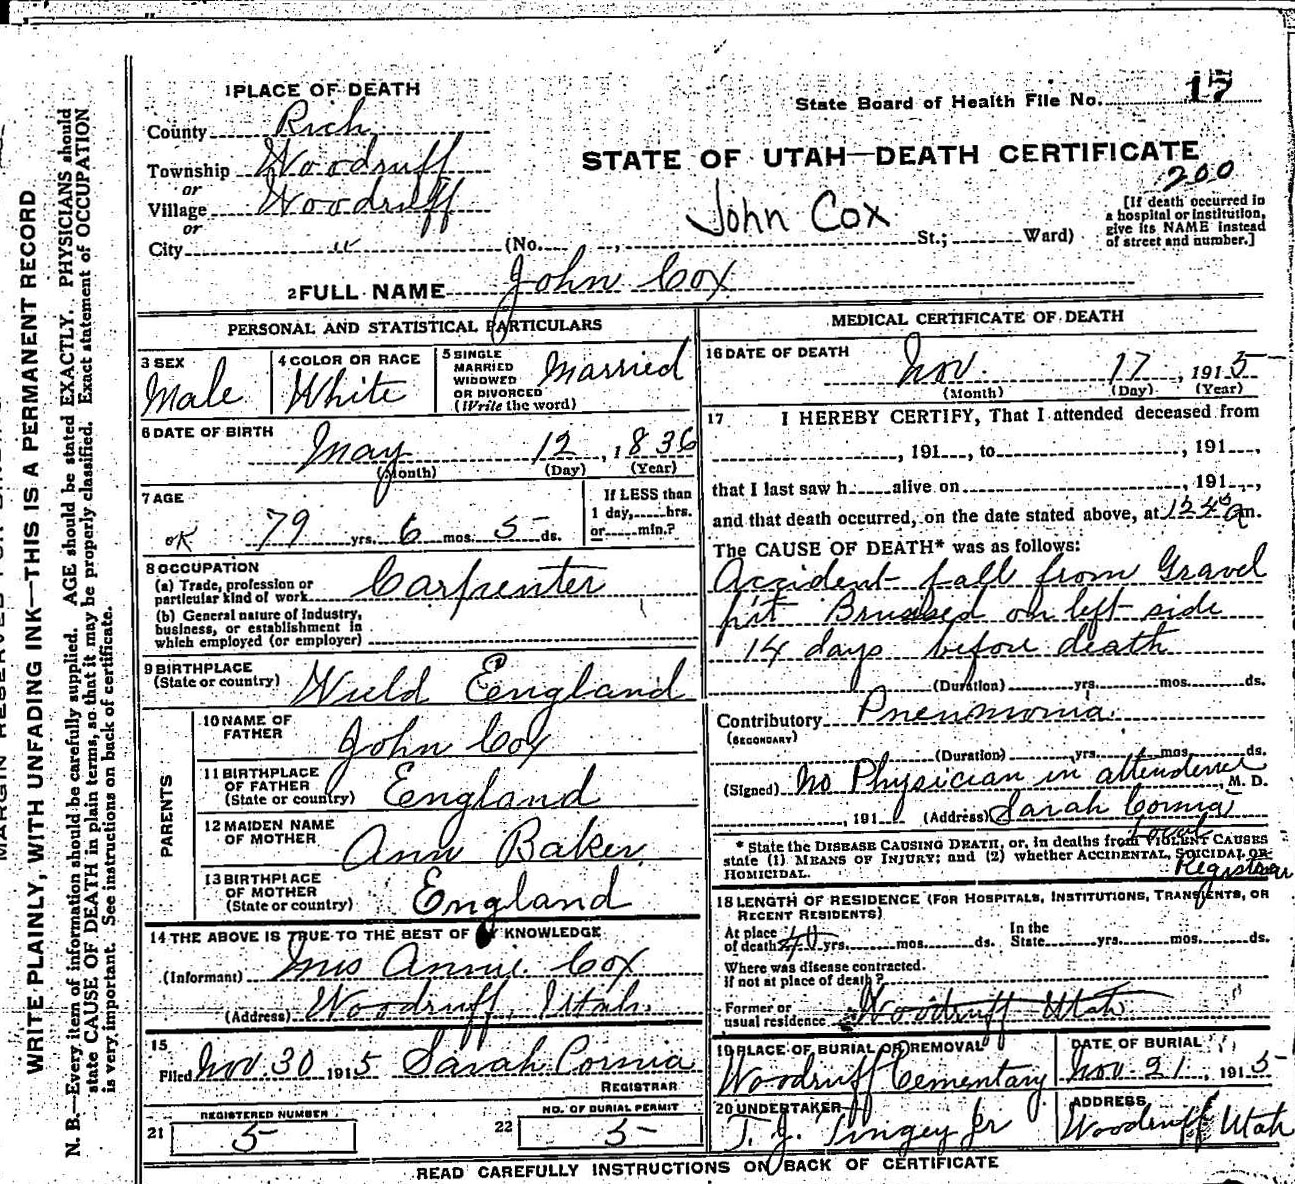 1 PLACE OF DEATH
State Board of Health File No. 17
County Rich
STATE OF UTAH—DEATH CERTIFICATE
200
Township Woodruff
or
Village Woodruff
or
City " (No. , St.; Ward)
John Cox
[If death occurred in
a hospital or institution,
give its NAME instead
of street and number.]
2 FULL NAME John Cox
PERSONAL AND STATISTICAL PARTICULARS
3 SEX
Male
4 COLOR OR RACE
White
5 SINGLE
MARRIED
WIDOWED
OR DIVORCED
(Write the word)
Married
6 DATE OF BIRTH
May 12, 1836
(Month) (Day) (Year)
7 AGE
OK 79 yrs. 6 mos. 5 ds.
If LESS than
1 day, hrs.
or min.?
8 OCCUPATION
(a) Trade, profession or
particular kind of work Carpenter
(b) General nature of industry,
business, or establishment in
which employed (or employer)
9 BIRTHPLACE
(State or country)
England
PARENTS
10 NAME OF
FATHER
John Cox
11 BIRTHPLACE
OF FATHER
(State or country)
England
12 MAIDEN NAME
OF MOTHER
Ann Baker
13 BIRTHPLACE
OF MOTHER
(State or country)
England
14 THE ABOVE IS TRUE TO THE BEST OF MY KNOWLEDGE
(Informant) Mrs Annie Cox
(Address) Woodruff, Utah.
15
Filed Nov. 30 1915 Sarah Cornia
REGISTRAR
21 REGISTERED NUMBER
5
22 NO. OF BURIAL PERMIT
5
MEDICAL CERTIFICATE OF DEATH
16 DATE OF DEATH
Nov. 17, 1915
(Month) (Day) (Year)
17 I HEREBY CERTIFY, That I attended deceased from
, 191 , to , 191 ,
that I last saw h alive on , 191 ,
and that death occurred, on the date stated above, at 12 45 Am.
The CAUSE OF DEATH* was as follows:
Accident fall from Gravel
pit Bruised on left side
14 days before death
(Duration) yrs. mos. ds.
Contributory Pneumonia
(SECONDARY)
(Duration) yrs. mos. ds.
(Signed) No Physician in attendence, M. D.
, 191 (Address) Sarah Cornia
Local
Registrar
* State the DISEASE CAUSING DEATH, or, in deaths from VIOLENT CAUSES
state (1) MEANS OF INJURY; and (2) whether ACCIDENTAL, SUICIDAL OR
HOMICIDAL.
18 LENGTH OF RESIDENCE (FOR HOSPITALS, INSTITUTIONS, TRANSIENTS, OR
RECENT RESIDENTS)
At place
of death 40 yrs. mos. ds.
In the
State yrs. mos. ds.
Where was disease contracted.
if not at place of death?
Former or
usual residence Woodruff Utah
19 PLACE OF BURIAL OR REMOVAL
Woodruff Cementary
DATE OF BURIAL
Nov. 21, 1915
20 UNDERTAKER
T. J. Tingey Jr
ADDRESS
Woodruff Utah
READ CAREFULLY INSTRUCTIONS ON BACK OF CERTIFICATE
MARGIN RESERVED FOR
WRITE PLAINLY, WITH UNFADING INK—THIS IS A PERMANENT RECORD
N. B.—Every item of information should be carefully supplied. AGE should be stated EXACTLY. PHYSICIANS should
state CAUSE OF DEATH in plain terms, so that it may be properly classified. Exact statement of OCCUPATION
is very important. See instructions on back of certificate.